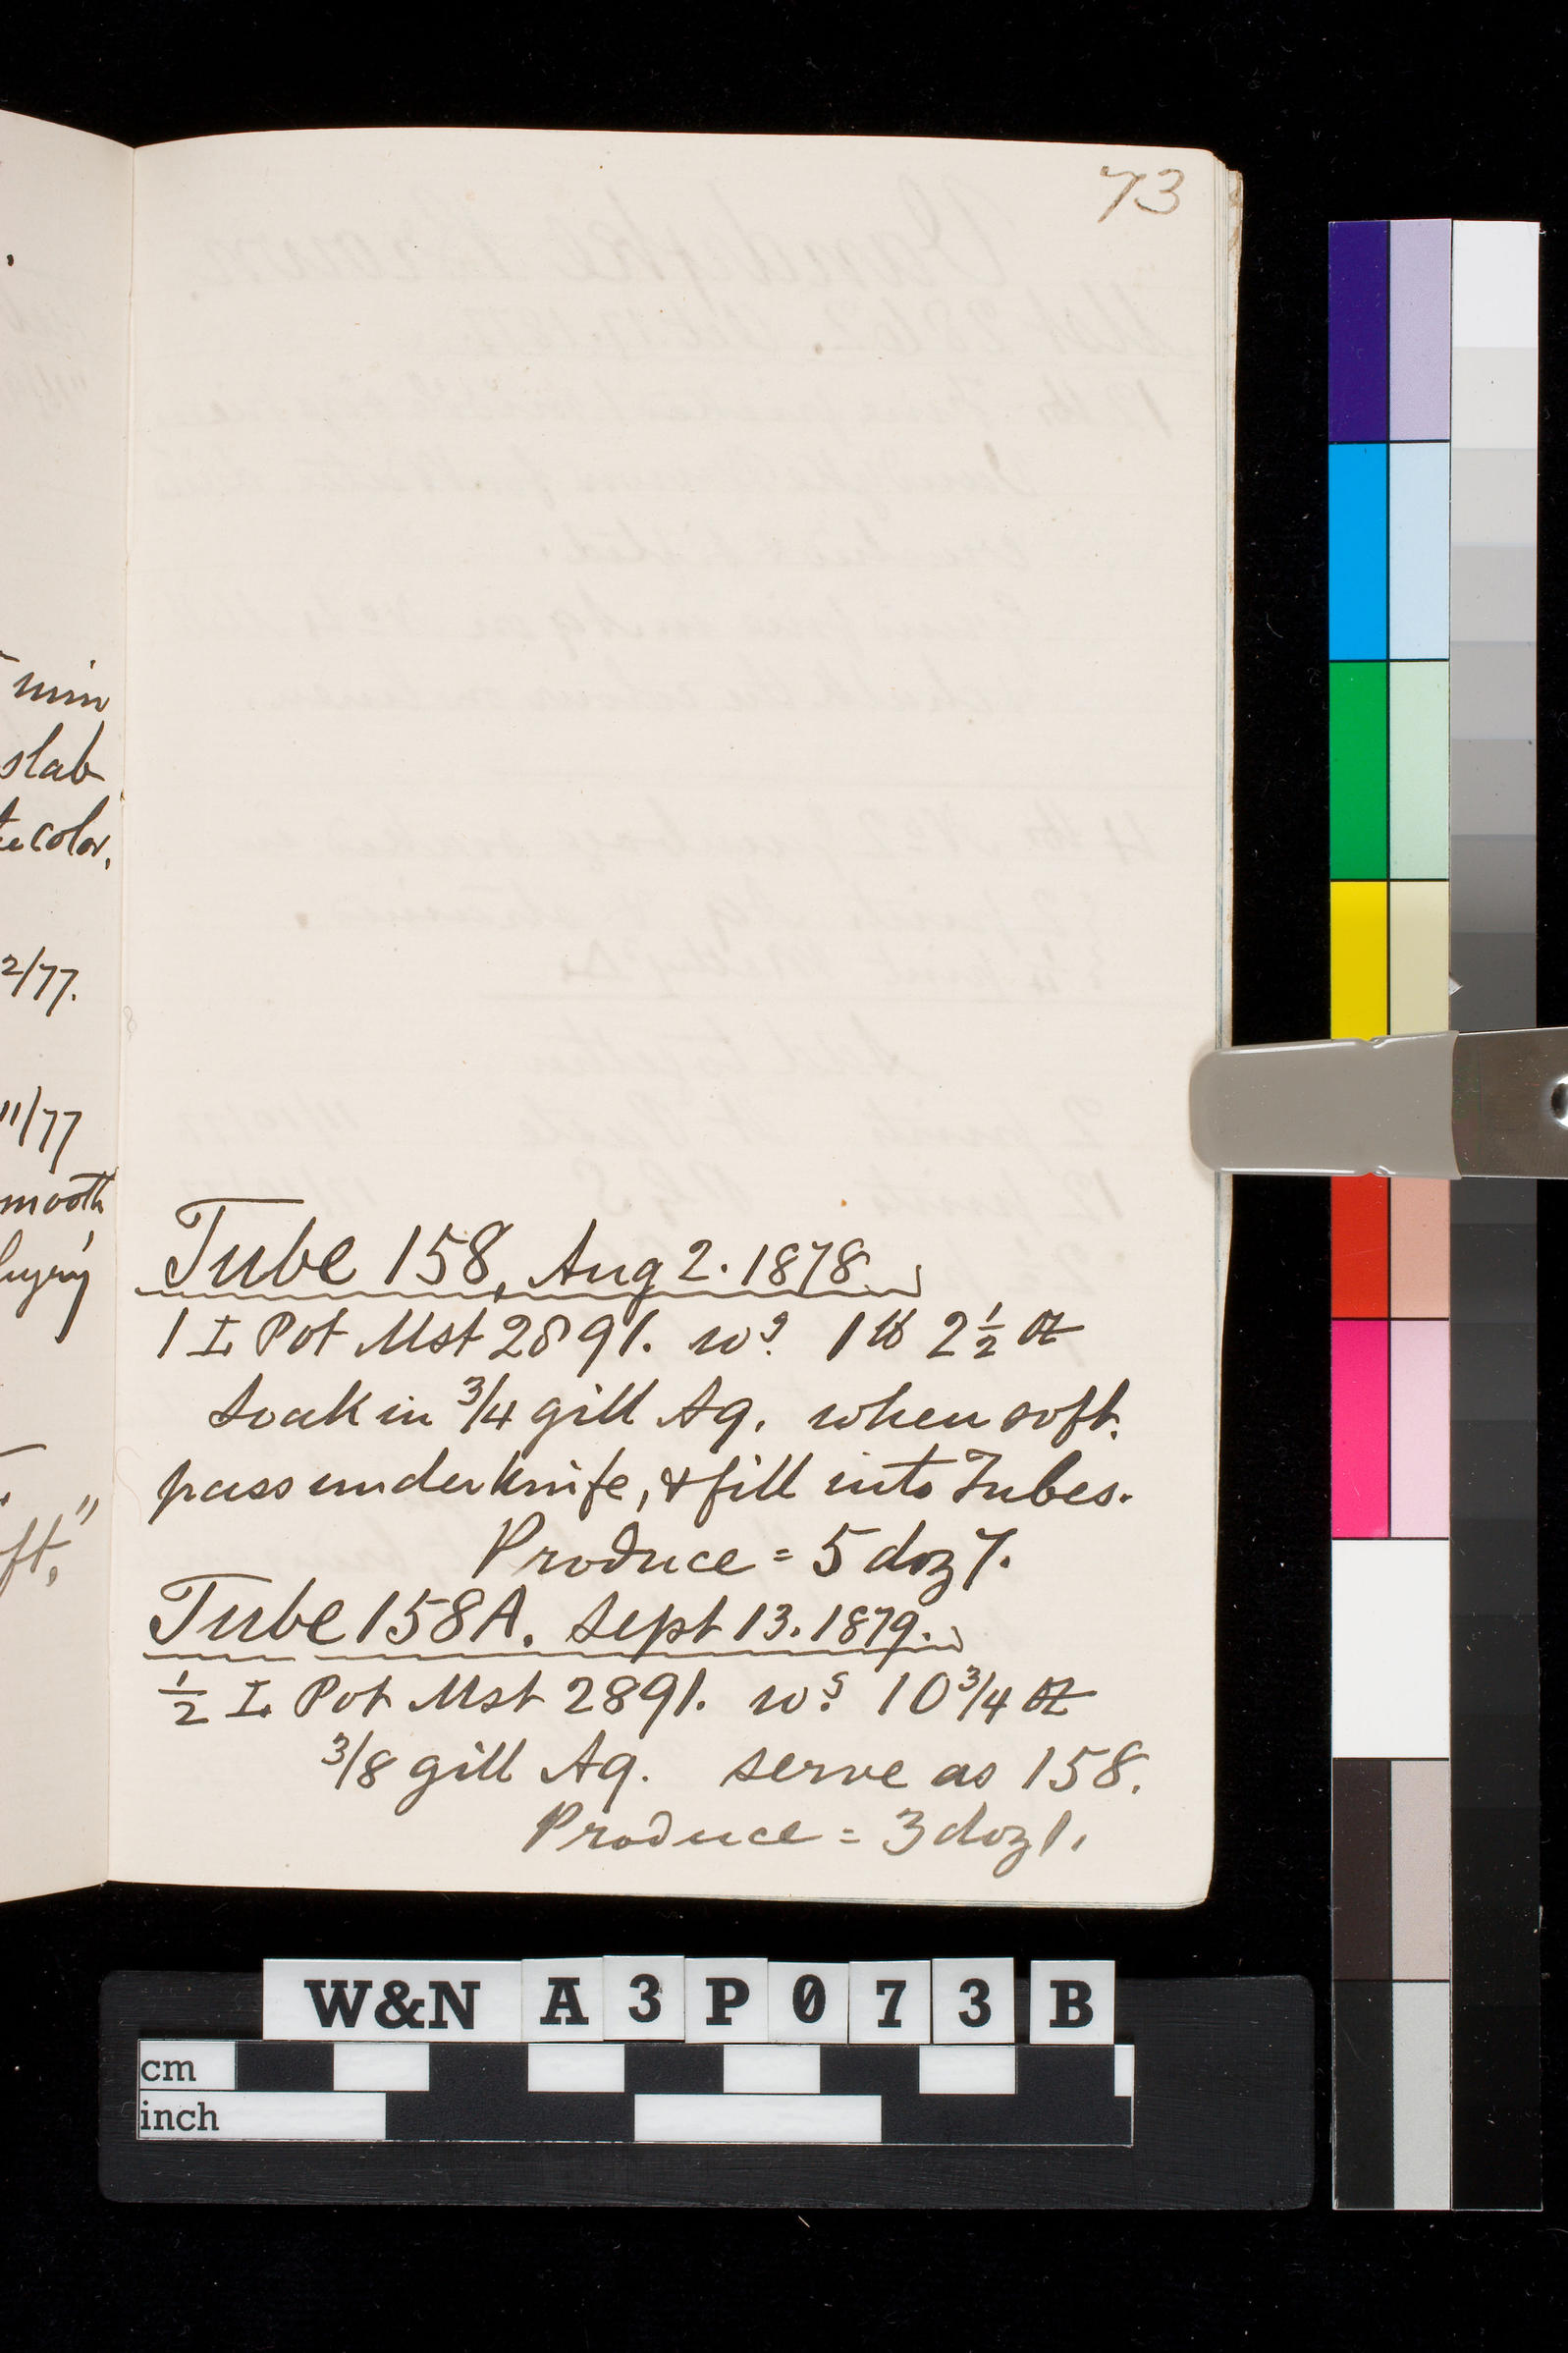 73
min
slab
color,
2/77.
11/77
mooth
Tube 158, Aug 2. 1878.
1 I. Pot Mst 2891. wg. 1 lb 2½ oz
Soak in 3/4 gill Aq. when soft.
pass under knife, & fill into Tubes.
Produce = 5 doz 7.
Tube 158A. Sept 13. 1879.
½ I. Pot Mst 2891. wg. 10 3/4 oz
3/8 gill Aq. serve as 158.
Produce = 3 doz 1.
W&N A3P073B
cm
inch